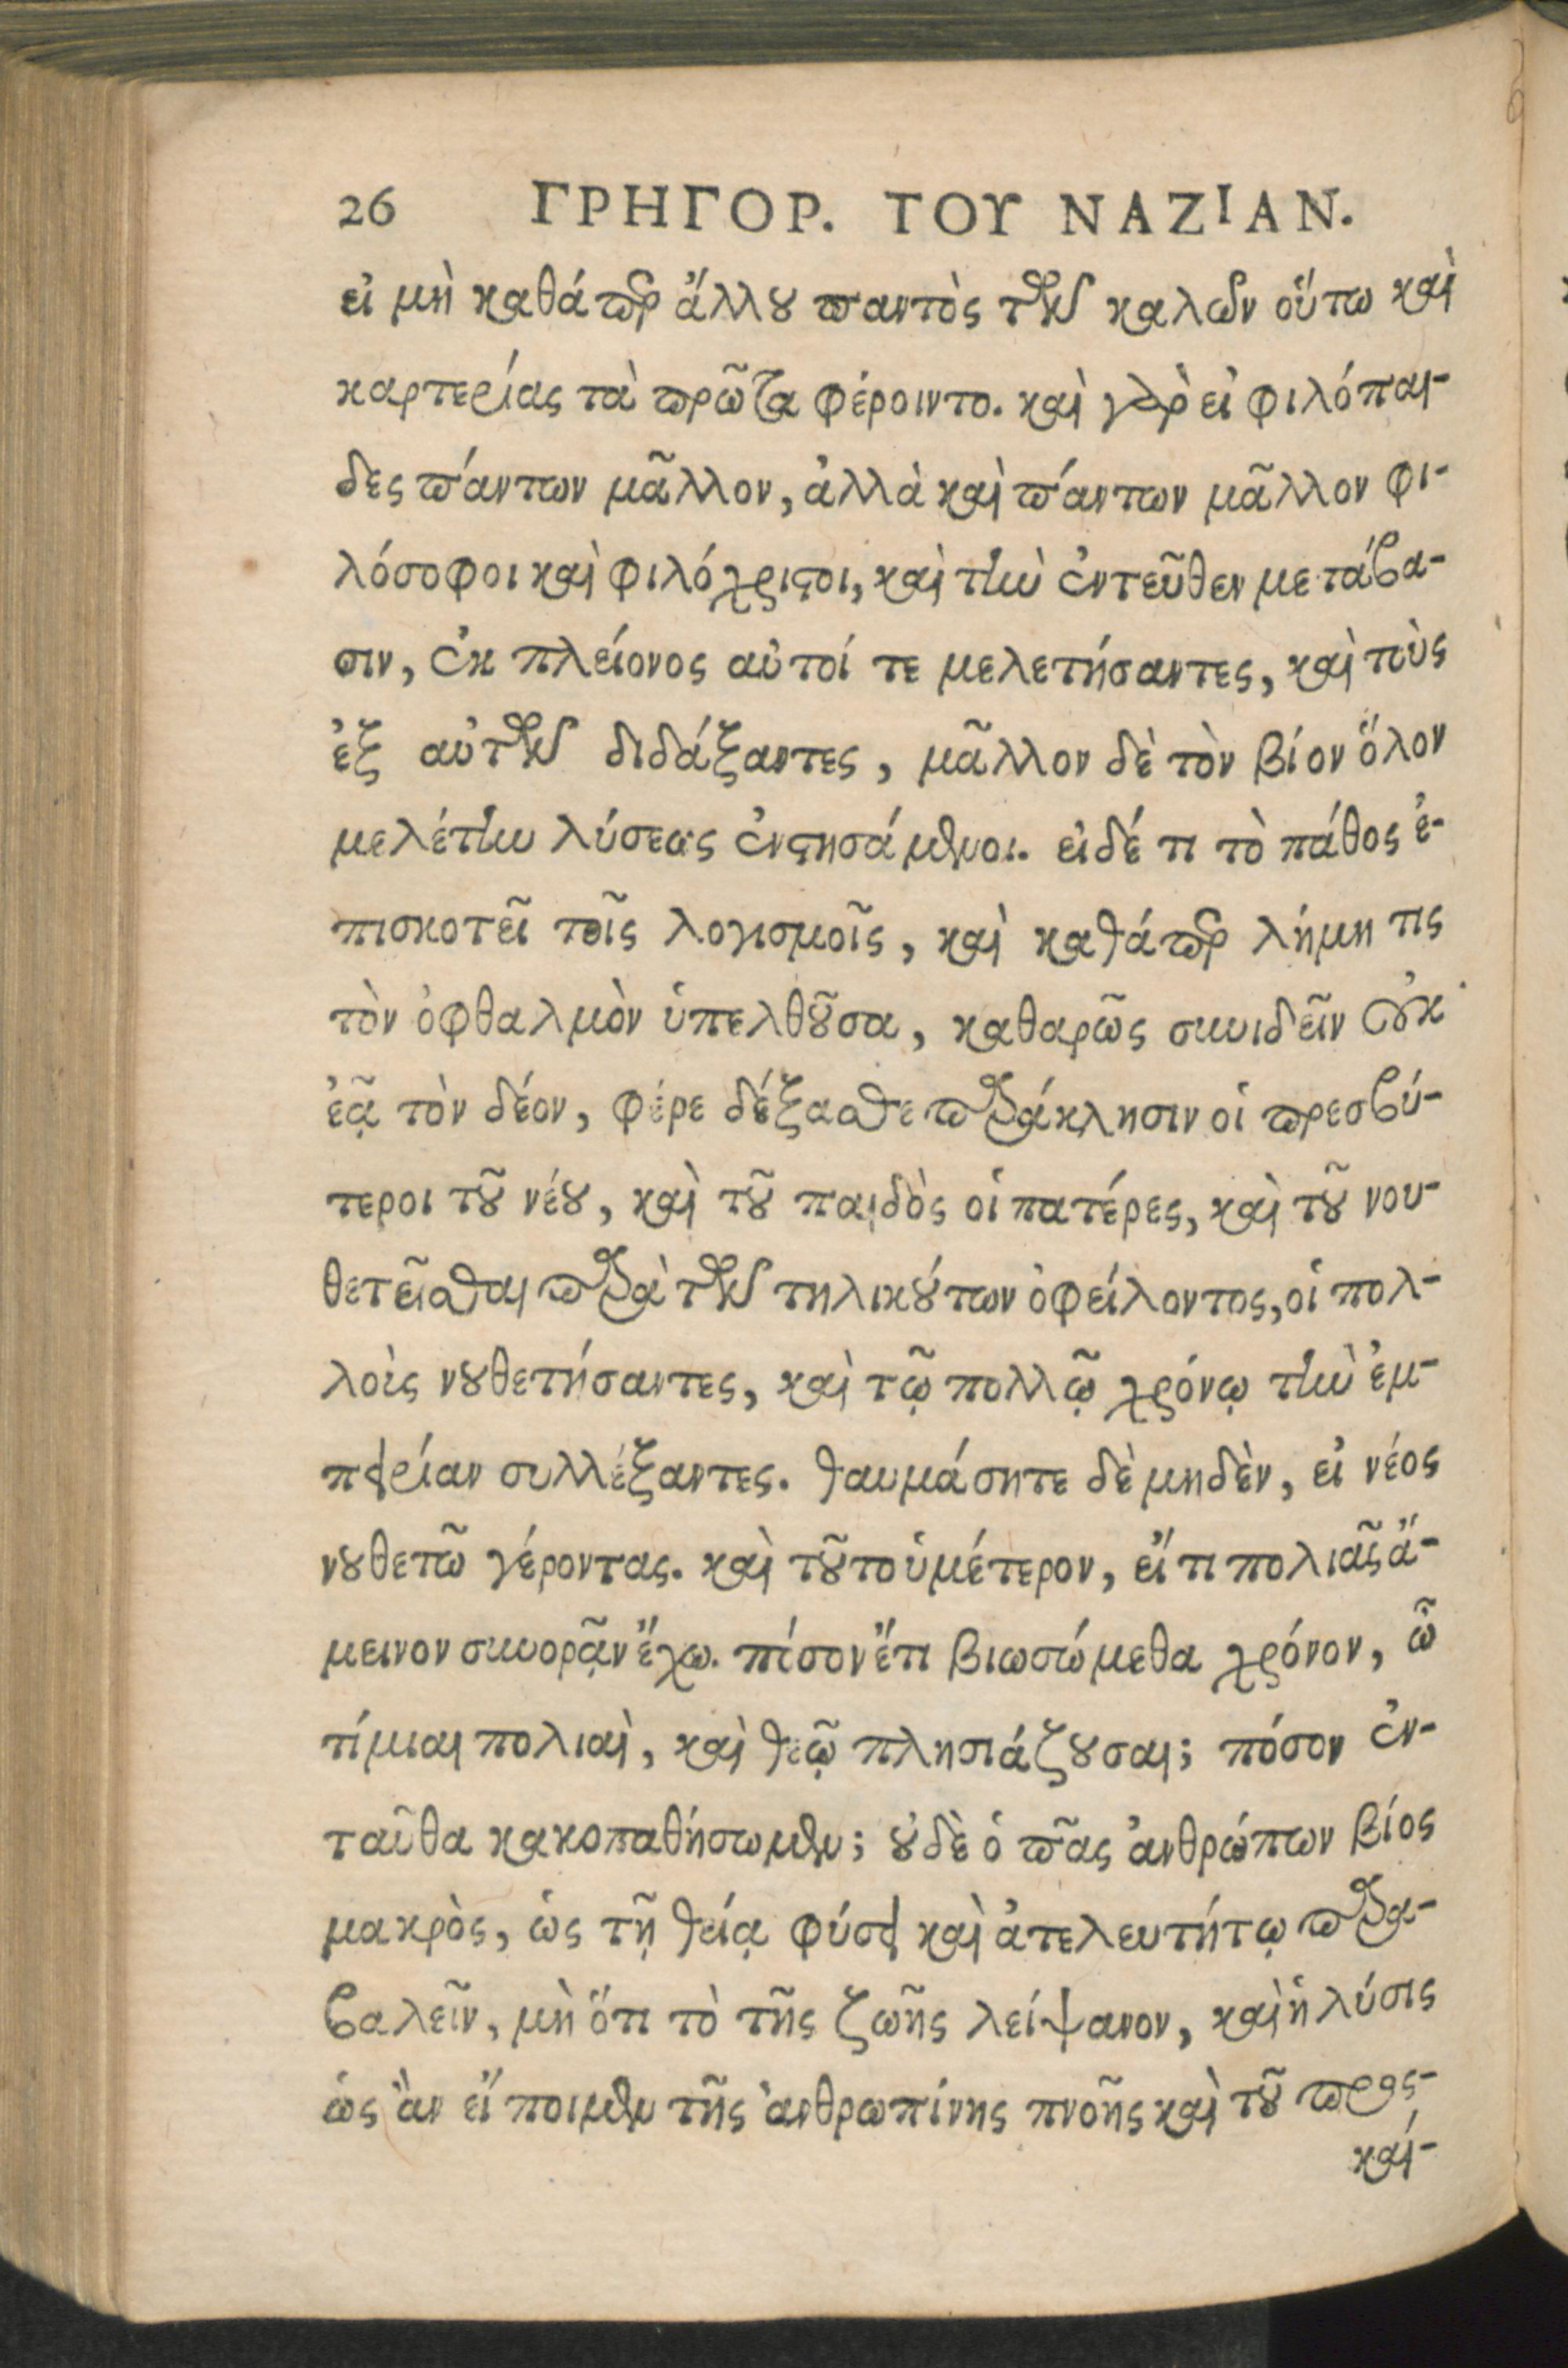 26 ΓΡΗΓΟΡ. ΤΟΥ ΝΑΖΙΑΝ.
εἰ μὴ καθάπερ ἄλλου παντὸς τῶν καλῶν οὕτω καὶ
καρτερίας τὰ πρῶτα φέροιντο. καὶ γὰρ εἰ φιλόπαι-
δες πάντων μᾶλλον, ἀλλὰ καὶ πάντων μᾶλλον φι-
λόσοφοι καὶ φιλόχριστοι, καὶ τὴν ἐντεῦθεν μετάβα-
σιν, ἐκ πλείονος αὐτοί τε μελετήσαντες, καὶ τοὺς
ἐξ αὐτῶν διδάξαντες, μᾶλλον δὲ τὸν βίον ὅλον
μελέτην λύσεως ἐνστησάμενοι. εἰ δέ τι τὸ πάθος ἐ-
πισκοτεῖ τοῖς λογισμοῖς, καὶ καθάπερ λήμη τις
τὸν ὀφθαλμὸν ὑπελθοῦσα, καθαρῶς συνιδεῖν οὐκ
ἐᾷ τὸν δέον, φέρε δέξασθε παράκλησιν οἱ πρεσβύ-
τεροι τοῦ νέου, καὶ τοῦ παιδὸς οἱ πατέρες, καὶ τοῦ νου-
θετεῖσθαι παρὰ τῶν τηλικούτων ὀφείλοντος, οἱ πολ-
λοὶς νουθετήσαντες, καὶ τῷ πολλῷ χρόνῳ τὴν ἐμ-
πειρίαν συλλέξαντες. θαυμάσητε δὲ μηδὲν, εἰ νέος
νουθετῶ γέροντας. καὶ τοῦτο ὑμέτερον, εἴ τι πολιᾶς ἄ-
μεινον συνορᾷν ἔχω. πόσον ἔτι βιωσώμεθα χρόνον, ὦ
τίμιαι πολιαὶ, καὶ θεῷ πλησιάζουσαι; πόσον ἐν-
ταῦθα κακοπαθήσωμεν; οὐδὲ ὁ πᾶς ἀνθρώπων βίος
μακρὸς, ὡς τῇ θείᾳ φύσει καὶ ἀτελευτήτῳ παρα-
βαλεῖν, μὴ ὅτι τὸ τῆς ζωῆς λείψανον, καὶ ἡ λύσις
ὡς ἂν εἴποιμεν τῆς ἀνθρωπίνης πνοῆς καὶ τοῦ προς-
καί-